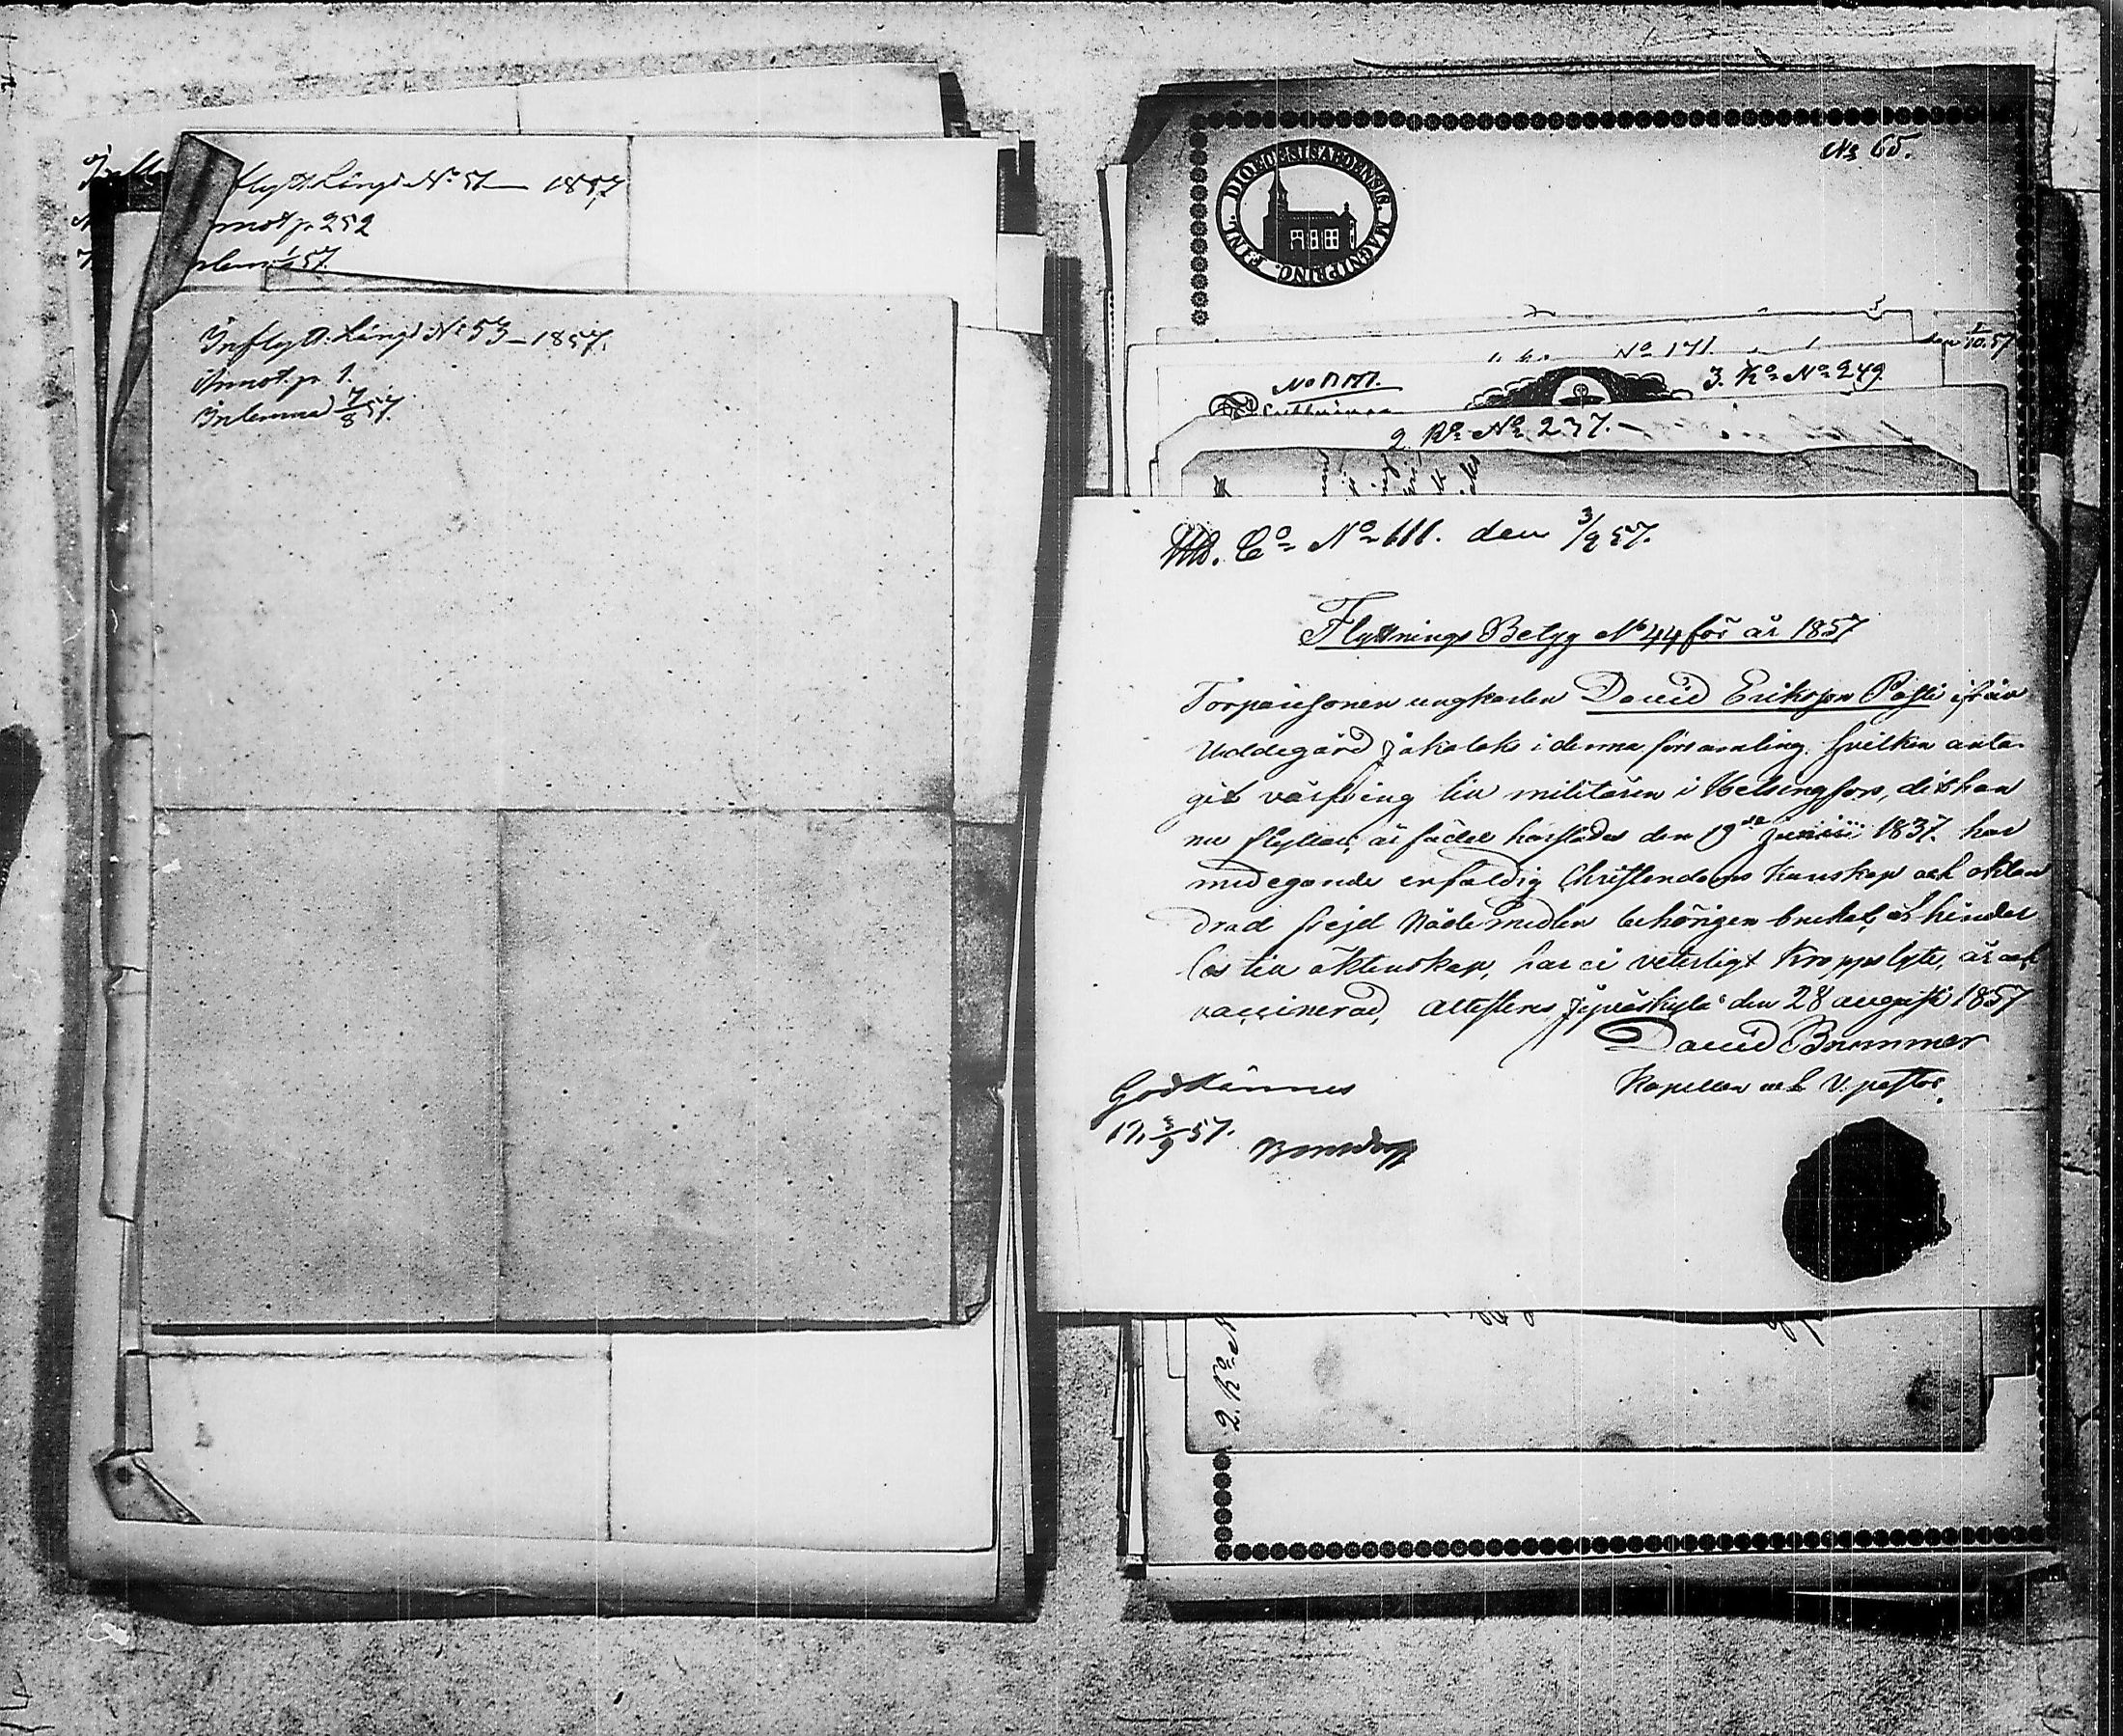 flytt. Längd No 51 — 1857
annot p. 252
Inflytt. Längd No 53 – 1857.
Annot. p. 1.
Inlemnad 7/8 57.
No 65.
DIOECESIS ABOENSIS. MAGNI PRINC. FINL.
den 1/10. 57
No 171.
3. Ko No 249.
2 Ko No 237. –
Co No 111. den 3/9 57.
Flyttnings Betyg No 44 för år 1857
Torparesonen ungkarlen David Eriksson
i denna församling, hvilken anta-
git värfning till militären i Helsingfors, dit han
nu flyttar, är född härstädes den 19de 1837. har
medegande enfaldig Christendoms kunskap och oklan
drad frejd Nådemedlen behörigen brukat, är hinder
lös till äktenskap, har ej veterligt kroppslyte, är ock
vaccinerad, attesteras Jyväskylä den 28 augusti 1857
David Brummer
Kapellan och V. pastor.
Godkännes
57.
2. Ko N